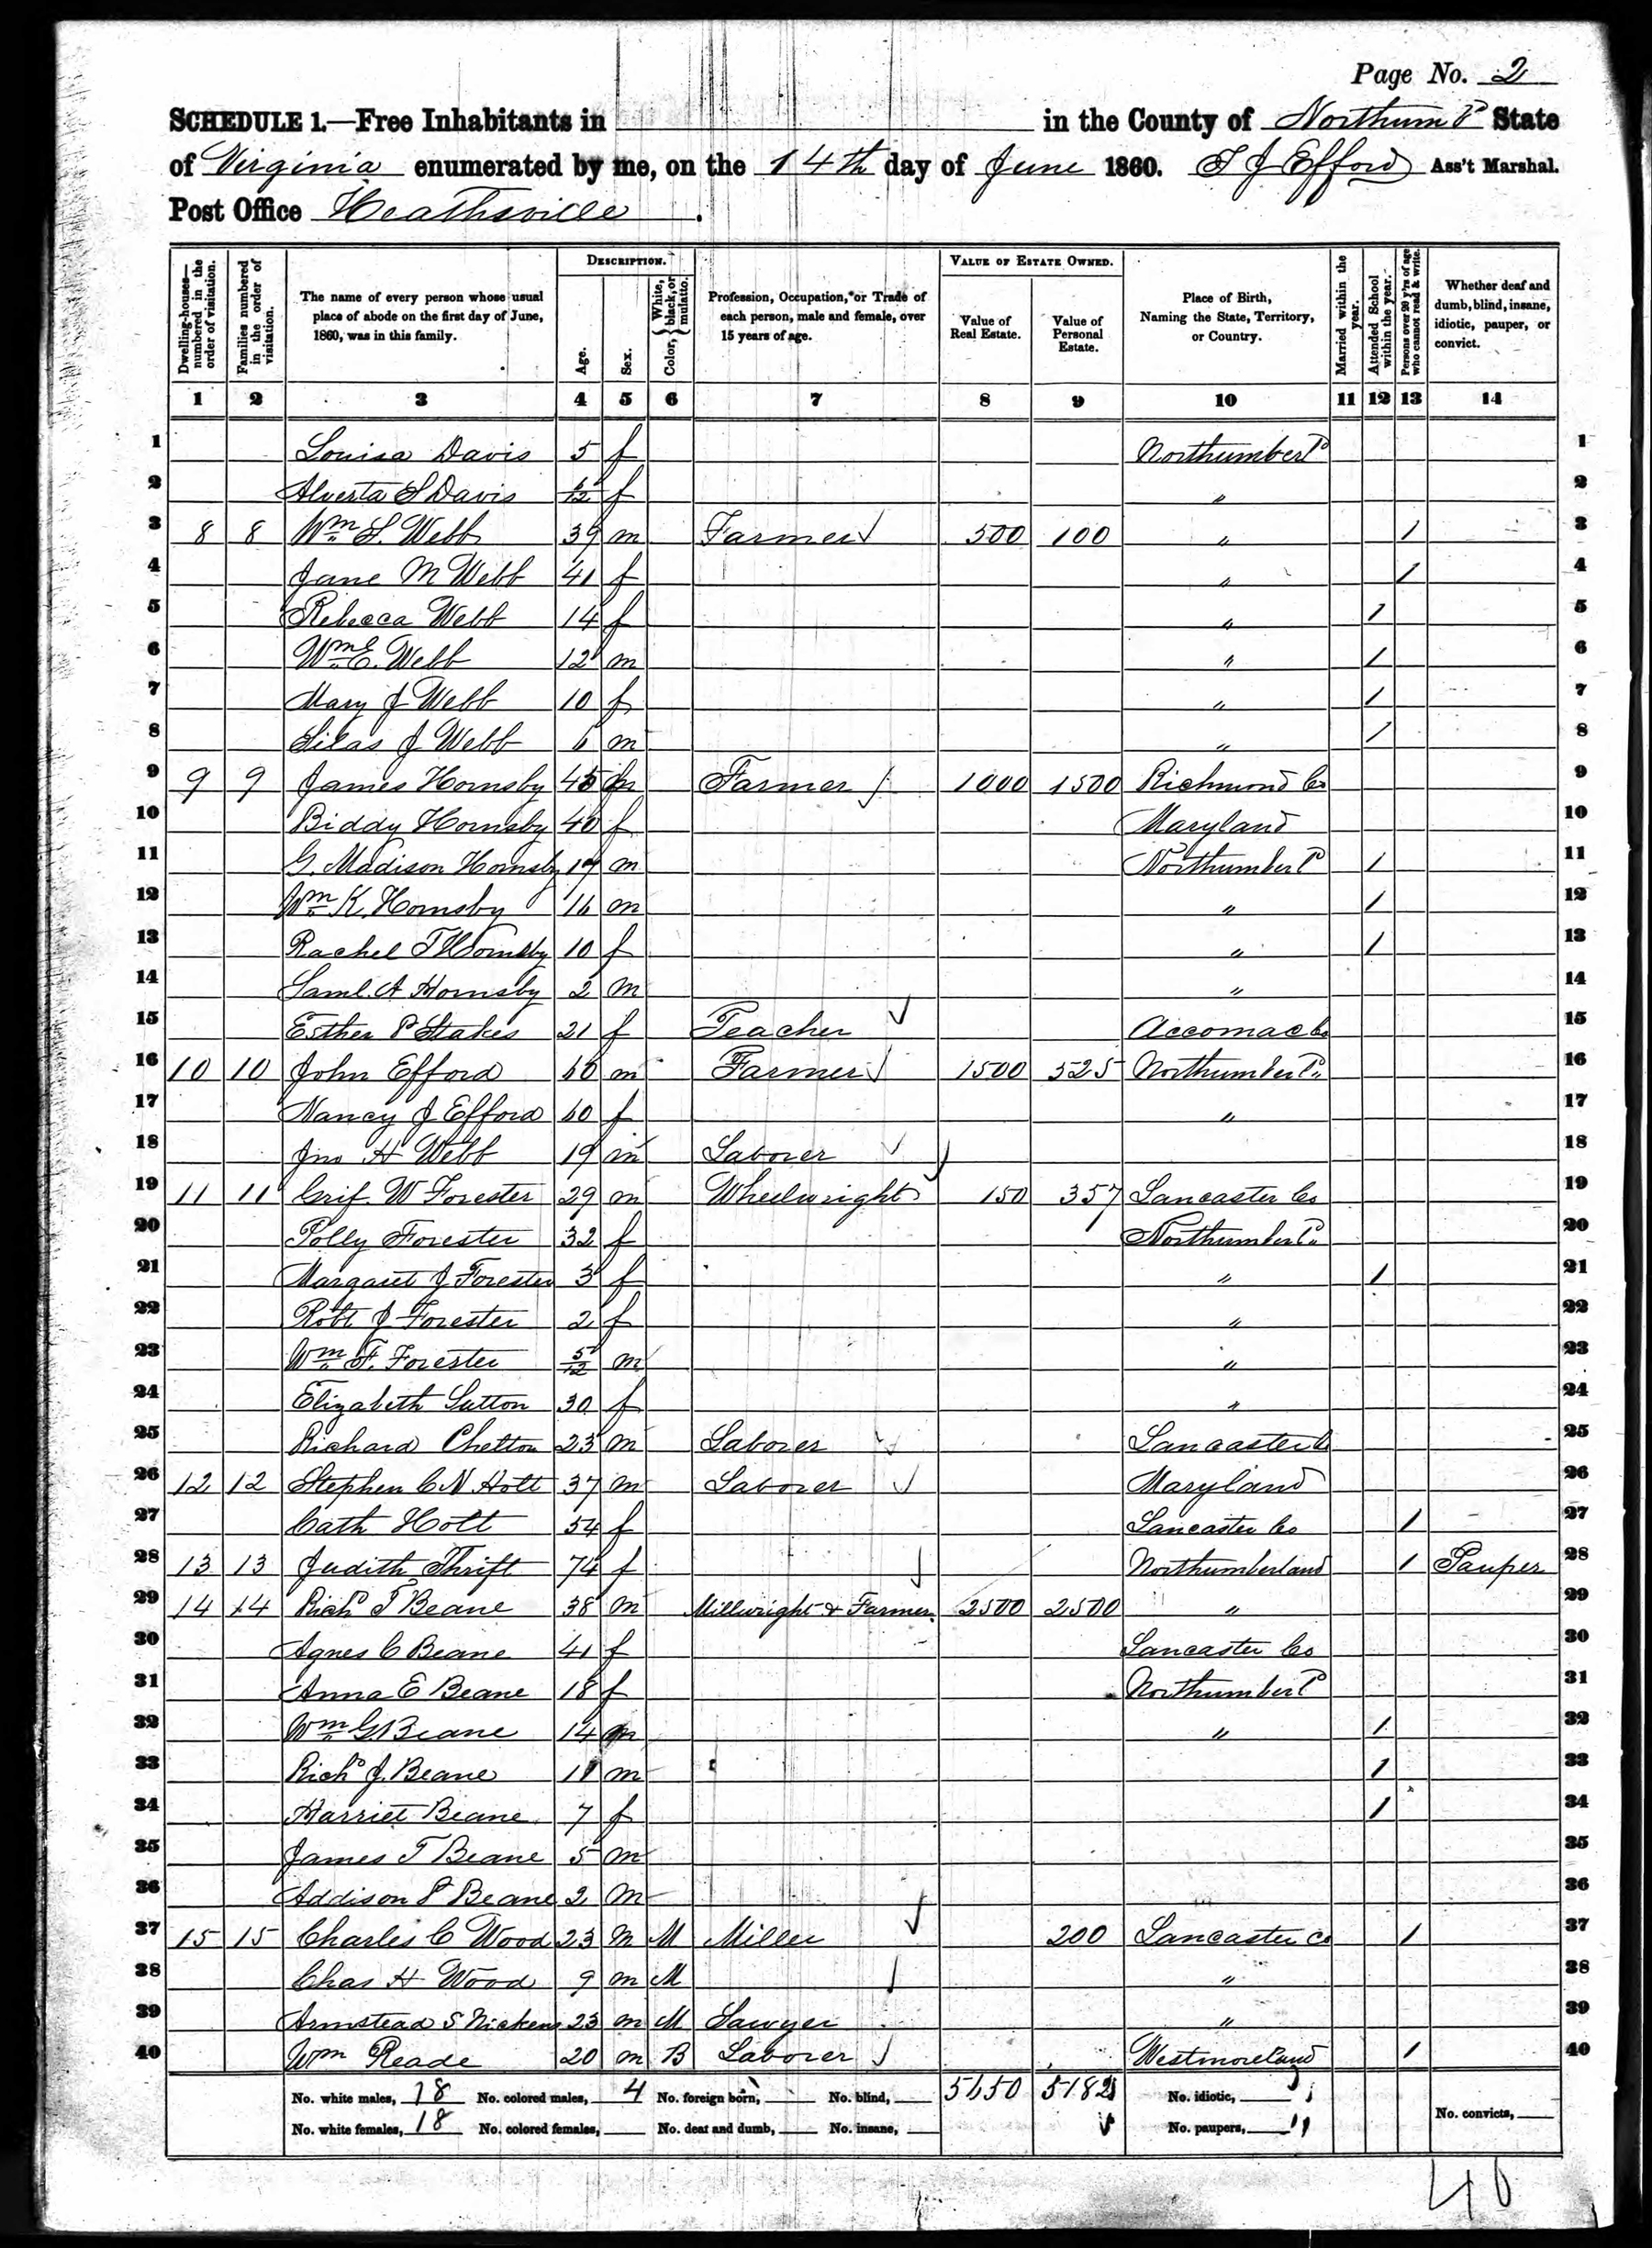 Page No. 2
SCHEDULE 1.—Free Inhabitants in in the County of Northumd State
of Virginia enumerated by me, on the 14th day of June 1860. T J Efford Ass't Marshal.
Post Office Heathsville.
DESCRIPTION. VALUE OF ESTATE OWNED.
Dwelling-houses—numbered in the order of visitation. Families numbered in the order of visitation. The name of every person whose usual place of abode on the first day of June, 1860, was in this family. Age. Sex. Color, {White, black, or mulatto. Profession, Occupation, or Trade of each person, male and female, over 15 years of age. Value of Real Estate. Value of Personal Estate. Place of Birth, Naming the State, Territory, or Country. Married within the year. Attended School within the year. Persons over 20 y'rs of age who cannot read & write. Whether deaf and dumb, blind, insane, idiotic, pauper, or convict.
1 2 3 4 5 6 7 8 9 10 11 12 13 14
1 Louisa Davis 5 f Northumberld 1
2 Alverta S Davis f " 2
3 8 8 Wm S. Webb 39 m Farmer 500 100 " / 3
4 Jane M Webb 41 f " / 4
5 Rebecca Webb 14 f " / 5
6 Wm E. Webb 12 m " / 6
7 Mary J Webb 10 f " / 7
8 Silas J Webb 6 m " / 8
9 9 9 James Hornsby 45 m Farmer 1000 1500 Richmond Co 9
10 Biddy Hornsby 40 f Maryland 10
11 G. Madison Hornsby 17 m Northumberld / 11
12 Wm K. Hornsby 16 m " / 12
13 Rachel T Hornsby 10 f " / 13
14 Saml. A Hornsby 2 m " 14
15 Esther P Stakes 21 f Teacher Accomac Co 15
16 10 10 John Efford 60 m Farmer 1500 525 Northumberld 16
17 Nancy J Efford 60 f " 17
18 Jno H Webb 19 m Laborer 18
19 11 11 Grif. W Forester 29 m Wheelwright 150 357 Lancaster Co 19
20 Polly Forester 32 f Northumberld 20
21 Margaret J Forester 3 f " / 21
22 Robt J Forester 2 f " 22
23 Wm F. Forester 5/12 m " 23
24 Elizabeth Sutton 30 f " 24
25 Richard Chelton 23 m Laborer Lancaster Co 25
26 12 12 Stephen C N Holt 37 m Laborer Maryland 26
27 Cath Holt 54 f Lancaster Co / 27
28 13 13 Judith Thrift 74 f Northumberland / Pauper 28
29 14 14 Richd T Beane 38 m Millwright & Farmer 2500 2500 " 29
30 Agnes C Beane 41 f Lancaster Co 30
31 Anna E Beane 18 f Northumberld 31
32 Wm G. Beane 14 m " / 32
33 Richd J. Beane 11 m / 33
34 Harriet Beane 7 f / 34
35 James T Beane 5 m 35
36 Addison P Beane 2 m 36
37 15 15 Charles C Wood 23 m M Miller 200 Lancaster Co / 37
38 Chas H Wood 9 m M " 38
39 Armstead S Nickens 23 m M Sawyer " 39
40 Wm Reade 20 m B Laborer Westmoreland / 40
No. white males, 18 No. colored males, 4 No. foreign born, No. blind, 5650 5182 No. idiotic,
No. white females, 18 No. colored females, No. deaf and dumb, No. insane, No. paupers, No. convicts,
40